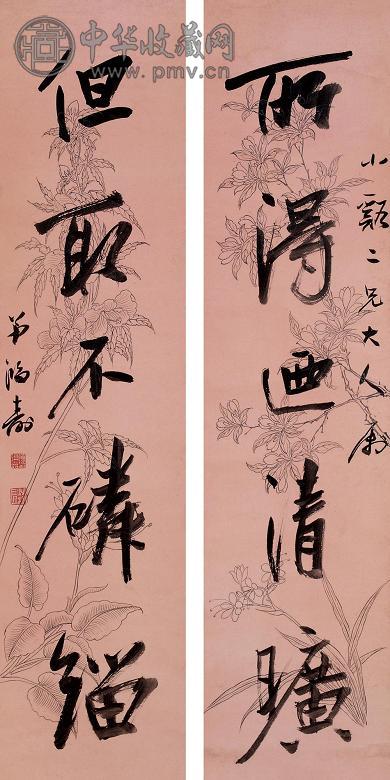 中华收藏网
www.pmv.cn
小谿二兄大人属
所得迺清曠
但取不磷緇
弟壽